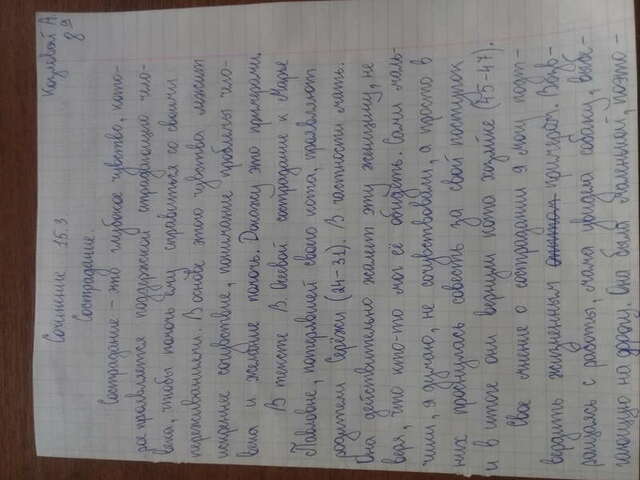 Козловой А
8 "д"
Сочинение 15.3
Сострадание.
Сострадание – это глубокое чувство, кото-
рое проявляется поддержкой страдающего чело-
века, чтобы помочь ему справиться со своими
переживаниями. В основе этого чувства лежит
искреннее сочувствие, понимание проблемы чело-
века и желание помочь. Докажу это примерами.
В тексте В. Осеевой сострадание к Марье
Павловне, потерявшей своего кота, проявляют
родители Серёжи (24-31). В частности мать.
Она действительно жалеет эту женщину, не
веря, что кто-то мог её обидеть. Сами маль-
чики, я думаю, не сочувствовали, а просто в
них проснулась совесть за свой поступок
и в итоге они вернули кота хозяйке (45-47).
Свое мнение о сострадании я могу подт-
вердить жизненным примером. Возв-
ращаясь с работы, мама увидела собаку, выбе-
гающую на дорогу. Она была маленькой, поэто-